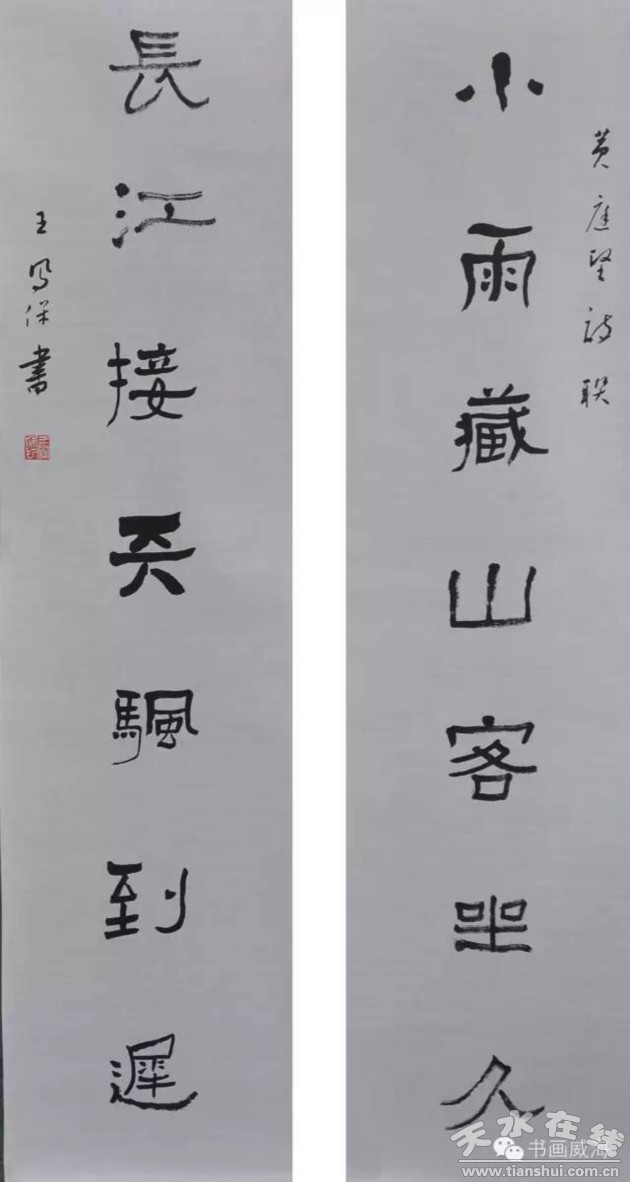 黄庭坚诗联
小雨藏山客坐久
長江接天颿到遲
王凤保書
天水在线
书画威海
www.tianshui.com.cn